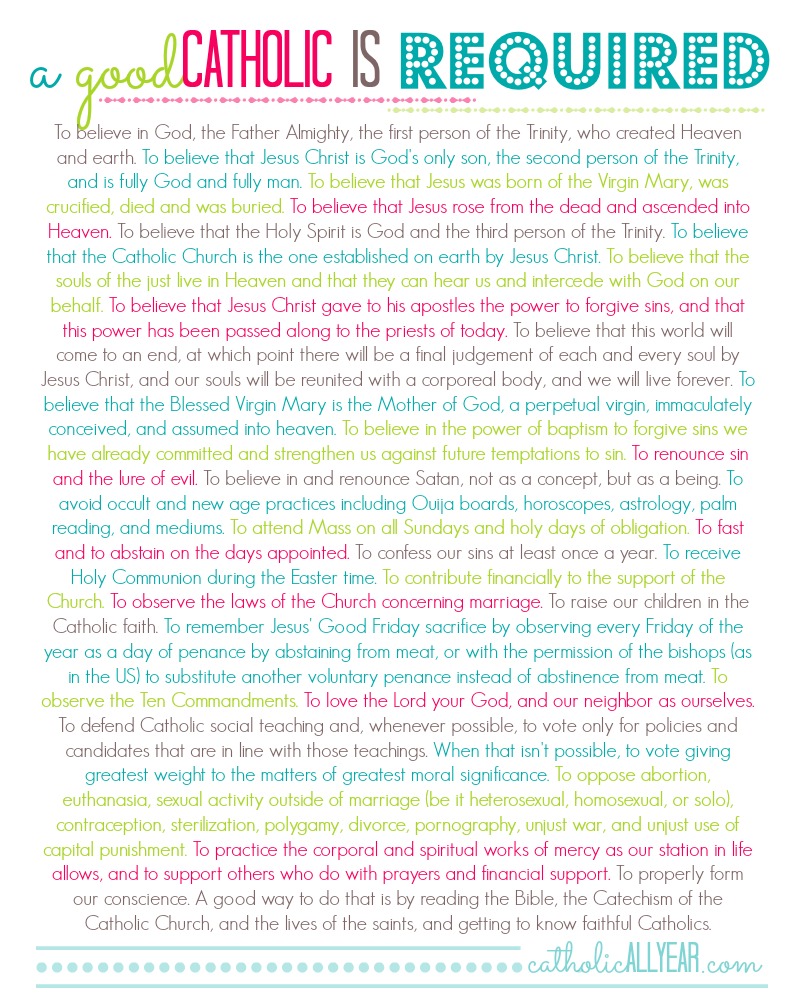 a good CATHOLIC IS REQUIRED
To believe in God, the Father Almighty, the first person of the Trinity, who created Heaven
and earth. To believe that Jesus Christ is God's only son, the second person of the Trinity,
and is fully God and fully man. To believe that Jesus was born of the Virgin Mary, was
crucified, died and was buried. To believe that Jesus rose from the dead and ascended into
Heaven. To believe that the Holy Spirit is God and the third person of the Trinity. To believe
that the Catholic Church is the one established on earth by Jesus Christ. To believe that the
souls of the just live in Heaven and that they can hear us and intercede with God on our
behalf. To believe that Jesus Christ gave to his apostles the power to forgive sins, and that
this power has been passed along to the priests of today. To believe that this world will
come to an end, at which point there will be a final judgement of each and every soul by
Jesus Christ, and our souls will be reunited with a corporeal body, and we will live forever. To
believe that the Blessed Virgin Mary is the Mother of God, a perpetual virgin, immaculately
conceived, and assumed into heaven. To believe in the power of baptism to forgive sins we
have already committed and strengthen us against future temptations to sin. To renounce sin
and the lure of evil. To believe in and renounce Satan, not as a concept, but as a being. To
avoid occult and new age practices including Ouija boards, horoscopes, astrology, palm
reading, and mediums. To attend Mass on all Sundays and holy days of obligation. To fast
and to abstain on the days appointed. To confess our sins at least once a year. To receive
Holy Communion during the Easter time. To contribute financially to the support of the
Church. To observe the laws of the Church concerning marriage. To raise our children in the
Catholic faith. To remember Jesus' Good Friday sacrifice by observing every Friday of the
year as a day of penance by abstaining from meat, or with the permission of the bishops (as
in the US) to substitute another voluntary penance instead of abstinence from meat. To
observe the Ten Commandments. To love the Lord your God, and our neighbor as ourselves.
To defend Catholic social teaching and, whenever possible, to vote only for policies and
candidates that are in line with those teachings. When that isn't possible, to vote giving
greatest weight to the matters of greatest moral significance. To oppose abortion,
euthanasia, sexual activity outside of marriage (be it heterosexual, homosexual, or solo),
contraception, sterilization, polygamy, divorce, pornography, unjust war, and unjust use of
capital punishment. To practice the corporal and spiritual works of mercy as our station in life
allows, and to support others who do with prayers and financial support. To properly form
our conscience. A good way to do that is by reading the Bible, the Catechism of the
Catholic Church, and the lives of the saints, and getting to know faithful Catholics.
catholicALLYEAR.com